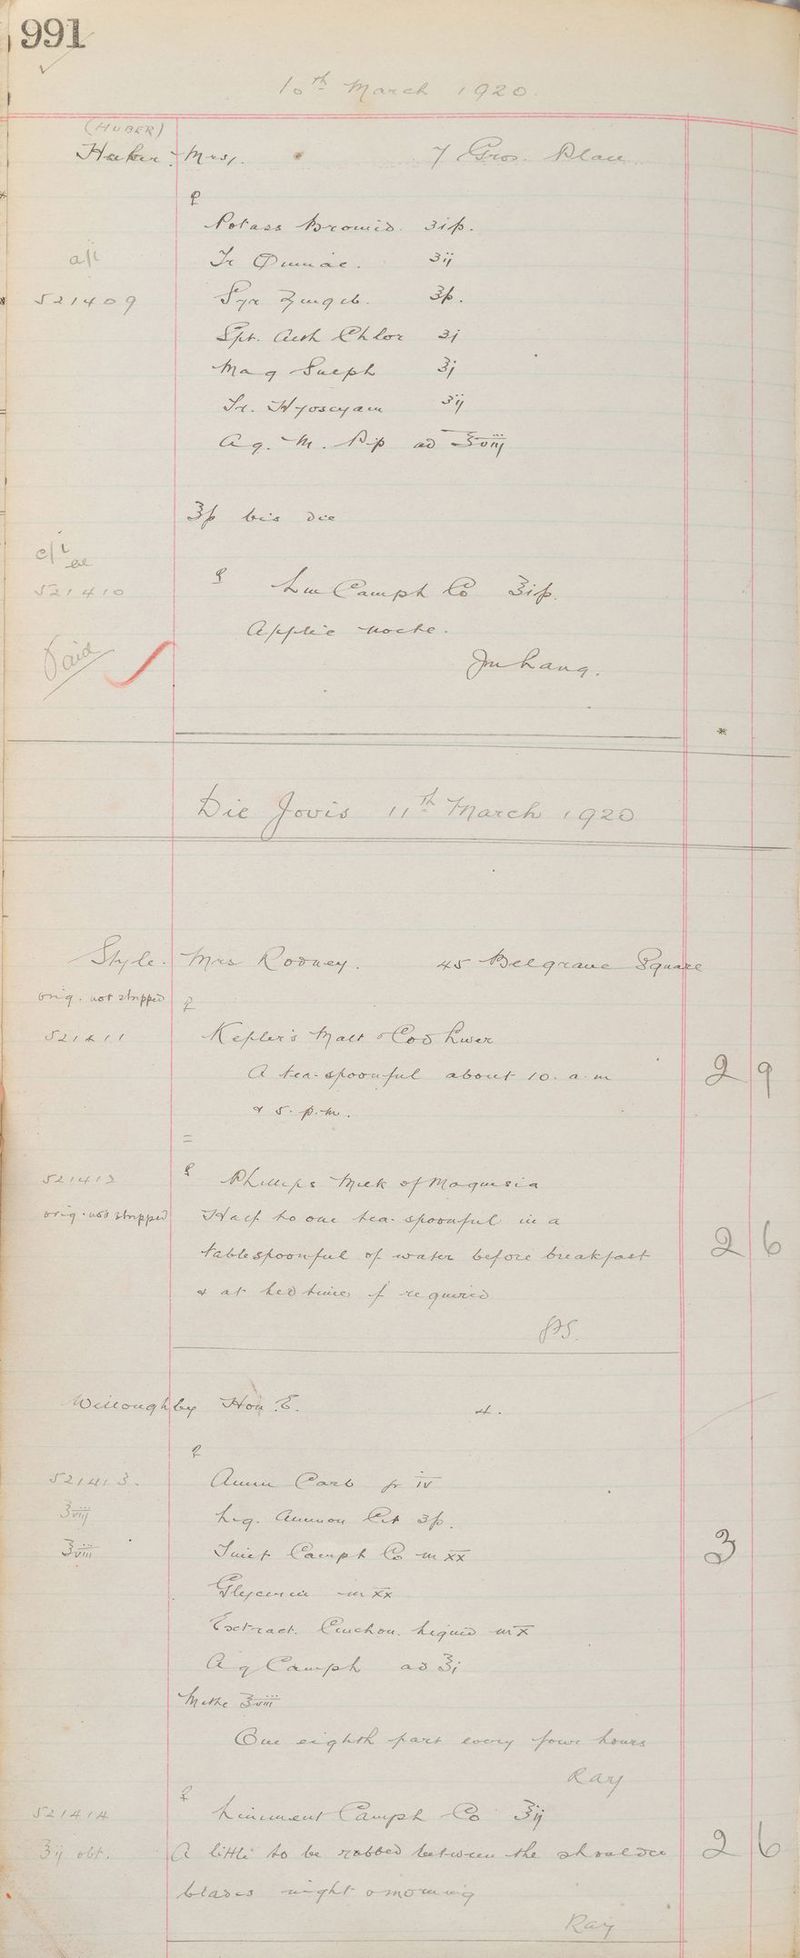 991
10th March 1920.
(HUBER)
Huber Mrs. 7 Gros. Place
℞
Potass Bromid. ʒiſs.
a/c Tr Quiniae. ʒij
521409 Syr Zingib. ℥ſs.
Spt. Aeth Chlor ʒj
Mag Sulph ℥j
Tr. Hyoscyam ʒij
Aq. M. Pip ad ℥viij
℥ſs bis die
c/i
521410 ℞ Lin Camph Co ℥iſs.
Applic nocte.
Paid
Die Jovis 11th March 1920
Style. Mrs Rodney. 45 Belgrave Square
orig. not stripped ℞
521411 Kepler's Malt & Cod Liver
A tea-spoonful about 10. a.m 2 9
& 5. p.m.
521412 ℞ Phillips Milk of Magnesia
orig. not stripped Half to one tea-spoonful in a
tablespoonful of water before breakfast 2 6
& at bedtime if required
Willoughby Hon. E. 4.
℞
521413. Amm Carb gr iv
℥viij Liq. Ammon Cit ʒſs.
℥viii Tinct Camph Co m xx 3
Glycerin m xx
Extract. Cinchon. Liquid m x
Aq Camph ad ℥j
Mitte ℥viii
One eighth part every four hours
Ray
℞
521414 Liniment Camph Co ℥ij
℥ij obt. A little to be rubbed between the shoulder 2 6
blades night & morning
Ray